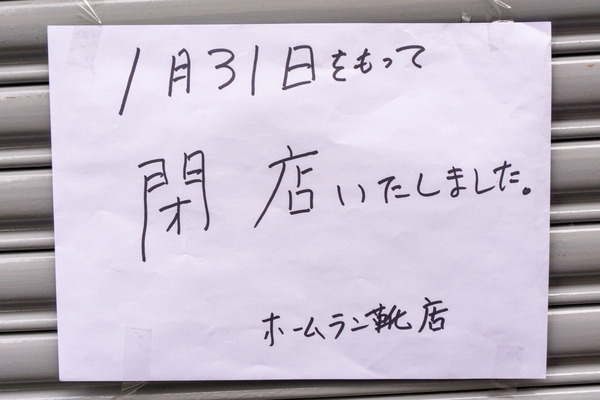 1月31日をもって
閉店いたしました。
ホームラン靴店